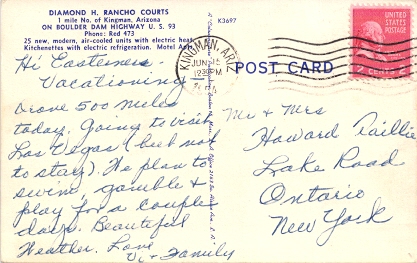 DIAMOND H. RANCHO COURTS
1 mile No. of Kingman, Arizona
ON BOULDER DAM HIGHWAY U. S. 93
Phone: Red 473
25 new, modern, air-cooled units with electric heat.
Kitchenettes with electric refrigeration. Motel Art.
Hi Easterners.
Vacationing
Drove 500 miles
today. Going to visit
Las Vegas (but not
to stay). We plan to
swim, gamble &
play for a couple
days. Beautiful
Weather. Love
Vi & Family
K3697
KINGMAN, ARIZ.
JUN 15
12 30 PM
POST CARD
UNITED STATES
POSTAGE
CENTS 2
Mr & Mrs
Howard
Lake Road
Ontario
New York